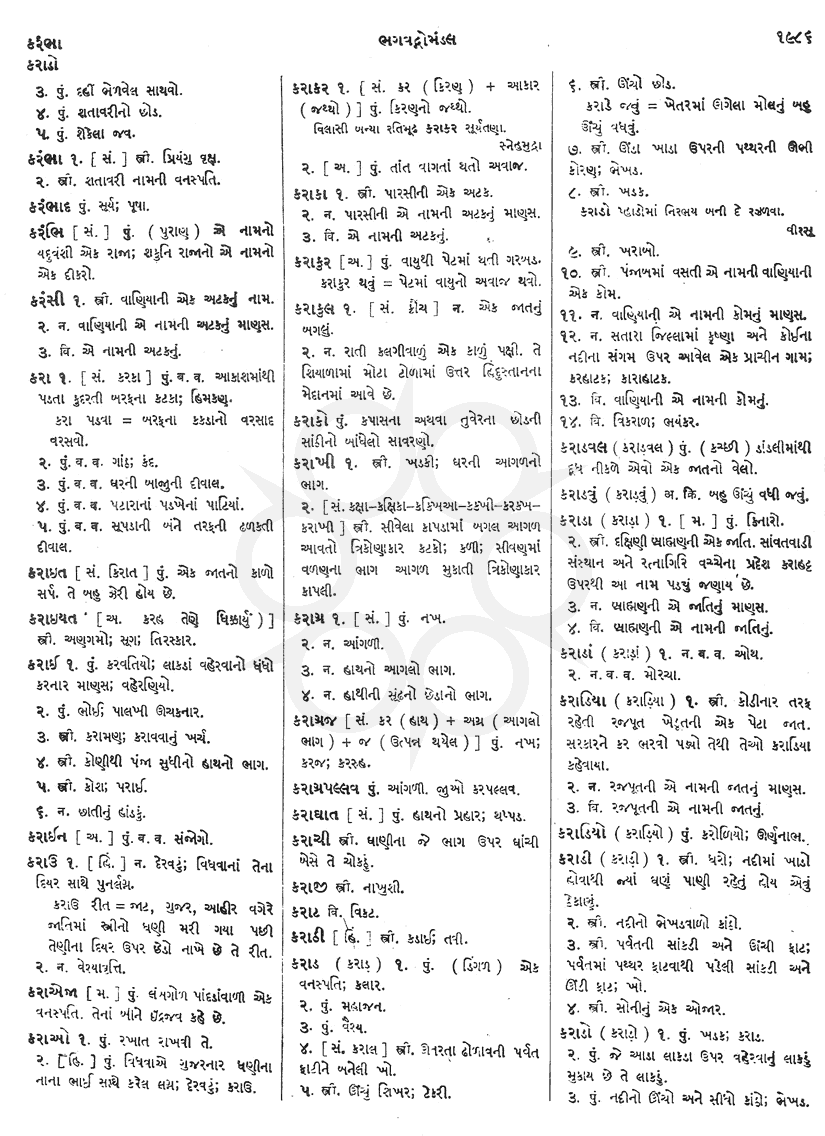 કરંભા
કરાડો
ભગવદ્ગોમંડલ
૧૯૮૬
૩. પું. દહીં ભેળવેલ સાથવો.
૪. પું. શતાવરીનો છોડ.
૫. પું. શેકેલા જવ.
કરંભા ૧. [ સં. ] સ્ત્રી. પ્રિયંગુ વૃક્ષ.
૨. સ્ત્રી. શતાવરી નામની વનસ્પતિ.
કરંભાદ પું. સૂર્ય; પૂષા.
કરંભિ [ સં. ] પું. ( પુરાણ ) એ નામનો
યદુવંશી એક રાજા; શકુનિ રાજાનો એ નામનો
એક દીકરો.
કરંસી ૧. સ્ત્રી. વાણિયાની એક અટકનું નામ.
૨. ન. વાણિયાની એ નામની અટકનું માણસ.
૩. વિ. એ નામની અટકનું.
કરા ૧. [ સં. કરકા ] પું.બ.વ. આકાશમાંથી
પડતા કુદરતી બરફના કટકા; હિમકણ.
કરા પડવા = બરફના કકડાનો વરસાદ
વરસવો.
૨. પું.બ.વ. ગાંઠ; કંદ.
૩. પું.બ.વ. ઘરની બાજુની દીવાલ.
૪. પું.બ.વ. પટારાનાં પડખેનાં પાટિયાં.
૫. પું.બ.વ. સૂપડાની બંને તરફની ઢળકતી
દીવાલ.
કરાઇત [ સં. કિરાત ] પું. એક જાતનો કાળો
સર્પ. તે બહુ ઝેરી હોય છે.
કરાઇયત [ અ. કરહ તેણે ધિક્કાર્યું )]
સ્ત્રી. અણગમો; સૂગ; તિરસ્કાર.
કરાઈ ૧. પું. કરવતિયો; લાકડાં વહેરવાનો ધંધો
કરનાર માણસ; વહેરણિયો.
૨. પું. ભોઈ; પાલખી ઊચકનાર.
૩. સ્ત્રી. કરામણ; કરાવવાનું ખર્ચ.
૪. સ્ત્રી. કોણીથી પંજા સુધીનો હાથનો ભાગ.
૫. સ્ત્રી. કોરા; પરાઈ.
૬. ન. છાતીનું હાંડકું.
કરાઈન [ અ. ] પું.બ.વ. સંજોગો.
કરાઉ ૧. [ હિં. ] ન. દેરવટું; વિધવાનાં તેના
દિયર સાથે પુનર્લગ્ન.
કરાઉ રીત = જાટ, ગુજર, આહીર વગેરે
જાતિમાં સ્ત્રીનો ધણી મરી ગયા પછી
તેણીના દિયર ઉપર છેડો નાખે છે તે રીત.
૨. ન. વેશ્યાવૃત્તિ.
કરાએજા [ મ. ] પું. લંબગોળ પાંદડાંવાળી એક
વનસ્પતિ. તેનાં બીને ઇંદ્રજવ કહે છે.
કરાઓ ૧. પું. રખાત રાખવી તે.
૨. [હિં. ] પું. વિધવાએ ગુજરનાર ધણીના
નાના ભાઈ સાથે કરેલ લગ્ન; દેરવટું; કરાઉ.
કરાકર ૧. [ સં. કર ( કિરણ ) + આકાર
( જથ્થો ) ] પું. કિરણનો જથ્થો.
વિલાસી બન્યા રતિમૂઢ કરાકર સૂર્યતણા.
સ્નેહમુદ્રા
૨. [ અ. ] પું. તાંત વાગતાં થતો અવાજ.
કરાકા ૧. સ્ત્રી. પારસીની એક અટક.
૨. ન. પારસીની એ નામની અટકનું માણસ.
૩. વિ. એ નામની અટકનું.
કરાકુર [અ. ] પું. વાયુથી પેટમાં થતી ગરબડ.
કરાકુર થવું = પેટમાં વાયુનો અવાજ થવો.
કરાકુલ ૧. [ સં. ક્રૌંચ ] ન. એક જાતનું
બગલું.
૨. ન. રાતી કલગીવાળું એક કાળું પક્ષી. તે
શિયાળામાં મોટા ટોળામાં ઉત્તર હિંદુસ્તાનના
મેદાનમાં આવે છે.
કરાકો પું. કપાસના અથવા તુવેરના છોડની
સાંઠીનો બાંધેલો સાવરણો.
કરાખી ૧. સ્ત્રી. ખડકી; ઘરની આગળનો
ભાગ.
૨. [સં. કક્ષા-કક્ષિકા-કક્ખિઆ-કક્ખી-કરકખ-
કરાખી ] સ્ત્રી. સીવેલા કાપડામાં બગલ આગળ
આવતો ત્રિકોણાકાર કટકો; કળી; સીવણમાં
વળણના ભાગ આગળ મુકાતી ત્રિકોણાકાર
કાપલી.
કરાગ્ર ૧. [ સં. ] પું. નખ.
૨. ન. આંગળી.
૩. ન. હાથનો આગલો ભાગ.
૪. ન. હાથીની સૂંઢનો છેડાનો ભાગ.
કરાગ્રજ [ સં. કર ( હાથ ) + અગ્ર ( આગલો
ભાગ ) + જ ( ઉત્પન્ન થયેલ ) ] પું. નખ;
કરજ; કરરુહ.
કરાગ્રપલ્લવ પું. આંગળી. જુઓ કરપલ્લવ.
કરાઘાત [ સં. ] પું. હાથનો પ્રહાર; થપ્પડ.
કરાચી સ્ત્રી. ઘાણીના જે ભાગ ઉપર ઘાંચી
બેસે તે ચોકઠું.
કરાજી સ્ત્રી. નાખુશી.
કરાટ વિ. વિકટ.
કરાઠી [ હિં. ] સ્ત્રી. કડાઈ; તવી.
કરાડ ( કરાડ઼ ) ૧. પું. ( ડિંગળ ) એક
વનસ્પતિ; કલાર.
૨. પું. મહાજન.
૩. પું. વૈશ્ય.
૪. [ સં. કરાલ ] સ્ત્રી. ઊતરતા ઢોળાવની પર્વત
ફાટીને બનેલી ખો.
૫. સ્ત્રી. ઊંચું શિખર; ટેકરી.
૬. સ્ત્રી. ઊંચો છોડ.
કરાડે જવું = ખેતરમાં ઊગેલા મોલનું બહુ
ઊંચું વધવું.
૭. સ્ત્રી. ઊંડા ખાડા ઉપરની પથ્થરની ઊભી
કોરણ; ભેખડ.
૮. સ્ત્રી. ખડક.
કરાડો પ્હાડોમાં નિરભય બની દે રઝળવા.
વીરસૂ
૯. સ્ત્રી. ખરાબો.
૧૦. સ્ત્રી. પંજાબમાં વસતી એ નામની વાણિયાની
એક કોમ.
૧૧. ન. વાણિયાની એ નામની કોમનું માણસ.
૧૨. ન. સતારા જિલ્લામાં કૃષ્ણા અને કોઈના
નદીના સંગમ ઉપર આવેલ એક પ્રાચીન ગામ;
કરહાટક; કારાહાટક.
૧૩. વિ. વાણિયાની એ નામની કોમનું.
૧૪. વિ. વિકરાળ; ભયંકર.
કરાડવલ ( કરાડ઼વલ ) પું. ( કચ્છી ) ડાંડલીમાંથી
દૂધ નીકળે એવો એક જાતનો વેલો.
કરાડવું ( કરાડ઼વું ) અ. ક્રિ. બહુ ઊંચું વધી જવું.
કરાડા ( કરાડ઼ા ) ૧. [ મ. ] પું. કિનારો.
૨. સ્ત્રી. દક્ષિણી બ્રાહ્મણની એક જાતિ. સાંવતવાડી
સંસ્થાન અને રત્નાગિરિ વચ્ચેના પ્રદેશ કરાહટ્ટ
ઉપરથી આ નામ પડ્યું જણાય છે.
૩. ન. બ્રાહ્મણની એ જાતિનું માણસ.
૪. વિ. બ્રાહ્મણની એ નામની જાતિનું.
કરાડાં ( કરાડ઼ાં ) ૧. ન. બ. વ. ઓથ.
૨. ન. બ. વ. મોરચા.
કરાડિયા ( કરાડ઼િયા ) ૧. સ્ત્રી. કોડીનાર તરફ
રહેતી રજપૂત ખેડૂતની એક પેટા જાત.
સરકારને કર ભરવો પડ્યો તેથી તેઓ કરાડિયા
કહેવાયા.
૨. ન. રજપૂતની એ નામની જાતનું માણસ.
૩. વિ. રજપૂતની એ નામની જાતનું.
કરાડિયો ( કરાડ઼િયો ) પું. કરોળિયો; ઊર્ણુનાભ.
કરાડી ( કરાડ઼ી ) ૧. સ્ત્રી. ધરો; નદીમાં ખાડો
હોવાથી જ્યાં ઘણું પાણી રહેતું હોય એવું
ઠેકાણું.
૨. સ્ત્રી. નદીનો ભેખડવાળો કાંઠો.
૩. સ્ત્રી. પર્વતની સાંકડી અને ઊંચી ફાટ;
પર્વતમાં પથ્થર ફાટવાથી પડેલી સાંકડી અને
ઊંડી ફાટ; ખો.
૪. સ્ત્રી. સોનીનું એક ઓજાર.
કરાડો ( કરાડ઼ો ) ૧. પું. ખડક; કરાડ.
૨. પું. જે આડા લાકડા ઉપર વહેરવાનું લાકડું
મુકાય છે તે લાકડું.
૩. પું. નદીનો ઊંચો અને સીધો કાંઠો; ભેખડ.